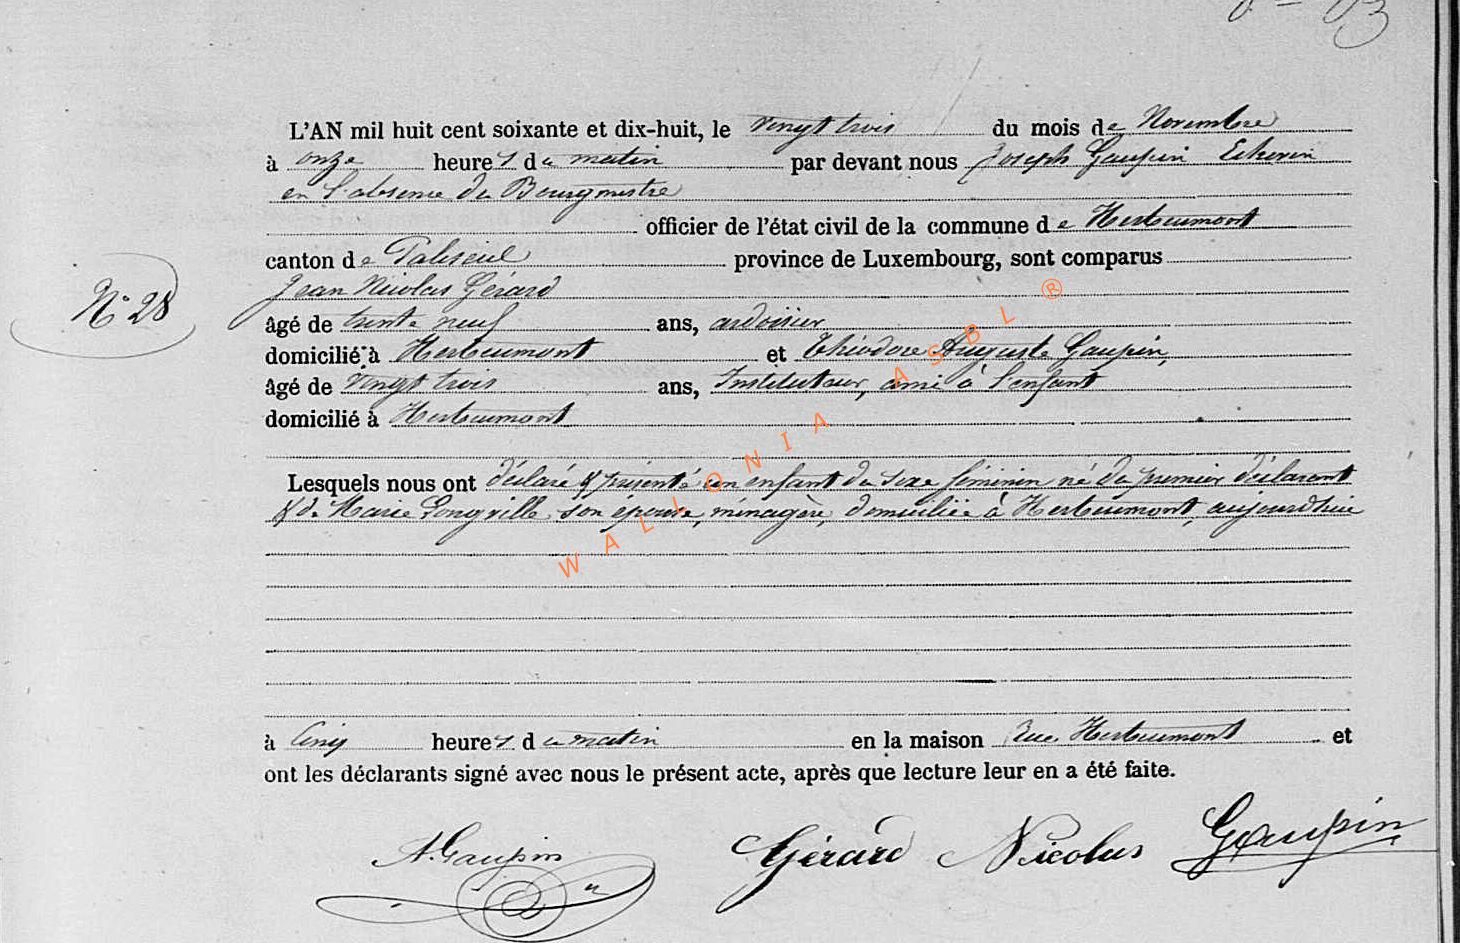 L'AN mil huit cent soixante et dix-huit, le vingt trois du mois de Novembre
à onze heures du matin par devant nous Joseph Gaupin Echevin
en l'absence du Bourgmestre
officier de l'état civil de la commune de Herbeumont
canton de Paliseul province de Luxembourg, sont comparus
Jean Nicolas Gérard
N° 28
âgé de trente neuf ans, ardoisier
domicilié à Herbeumont et Théodore Auguste Gaupin,
âgé de vingt trois ans, Instituteur, ami à l'enfant
domicilié à Herbeumont
Lesquels nous ont déclaré & présenté un enfant du sexe féminin né du premier déclarant
& de Marie Longville son épouse, ménagère, domiciliée à Herbeumont, aujourd'hui
à cinq heures du matin en la maison Rue Herbeumont et
ont les déclarants signé avec nous le présent acte, après que lecture leur en a été faite.
A. Gaupin Gérard Nicolas Gaupin
WALLONIA ASBL ®